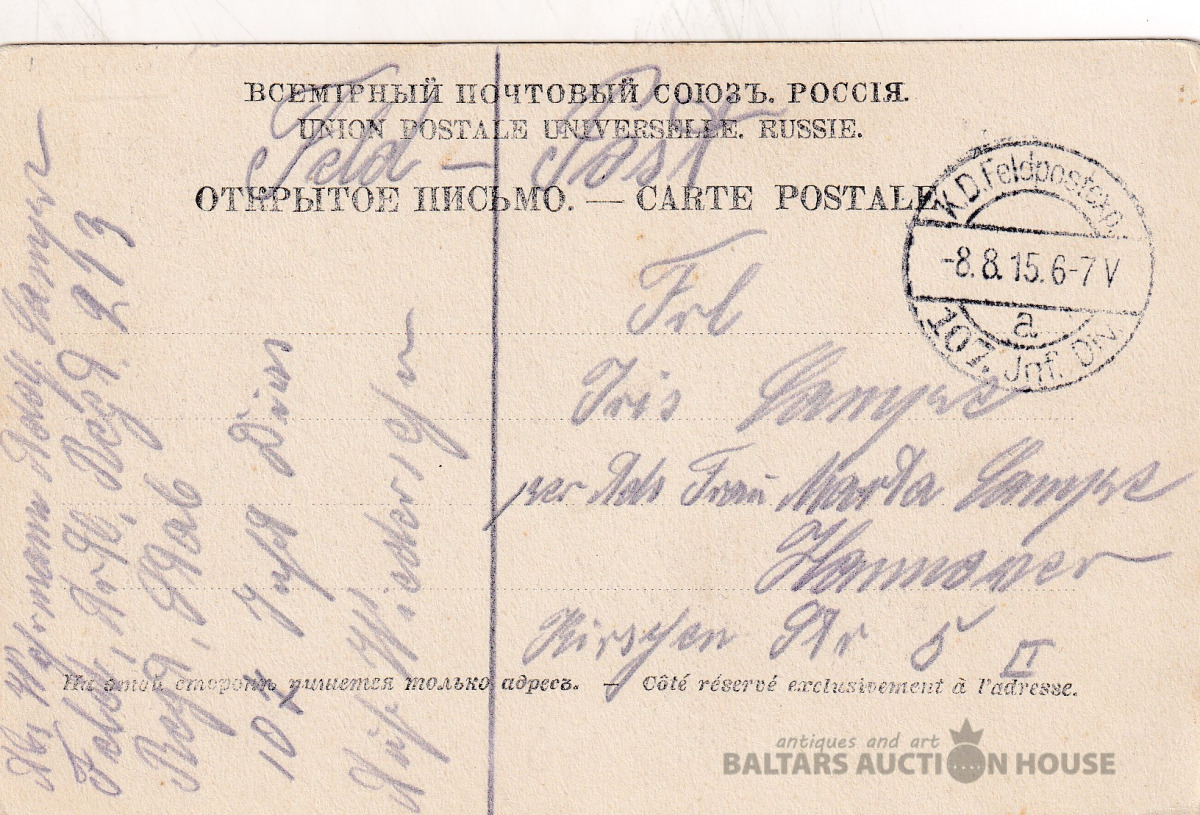 ВСЕМІРНЫЙ ПОЧТОВЫЙ СОЮЗЪ. РОССІЯ.
UNION POSTALE UNIVERSELLE. RUSSIE.
Feld - Post
ОТКРЫТОЕ ПИСЬМО. — CARTE POSTALE.
K.D. Feldpostexp.
-8.8.15.6-7 V
a
107. Inf. Div.
Frl
Iris Lampe
per Adr Frau Martha Lampe
Hannover
Kirschen Str 5 II
Abs Wehrmann
Feld, Art, Regt 213
Regt, Stab
107 Inft Divis
Auf Wiedersehn
На этой сторонѣ пишется только адресъ. — Côté réservé exclusivement à l'adresse.
antiques and art
BALTARS AUCTION HOUSE